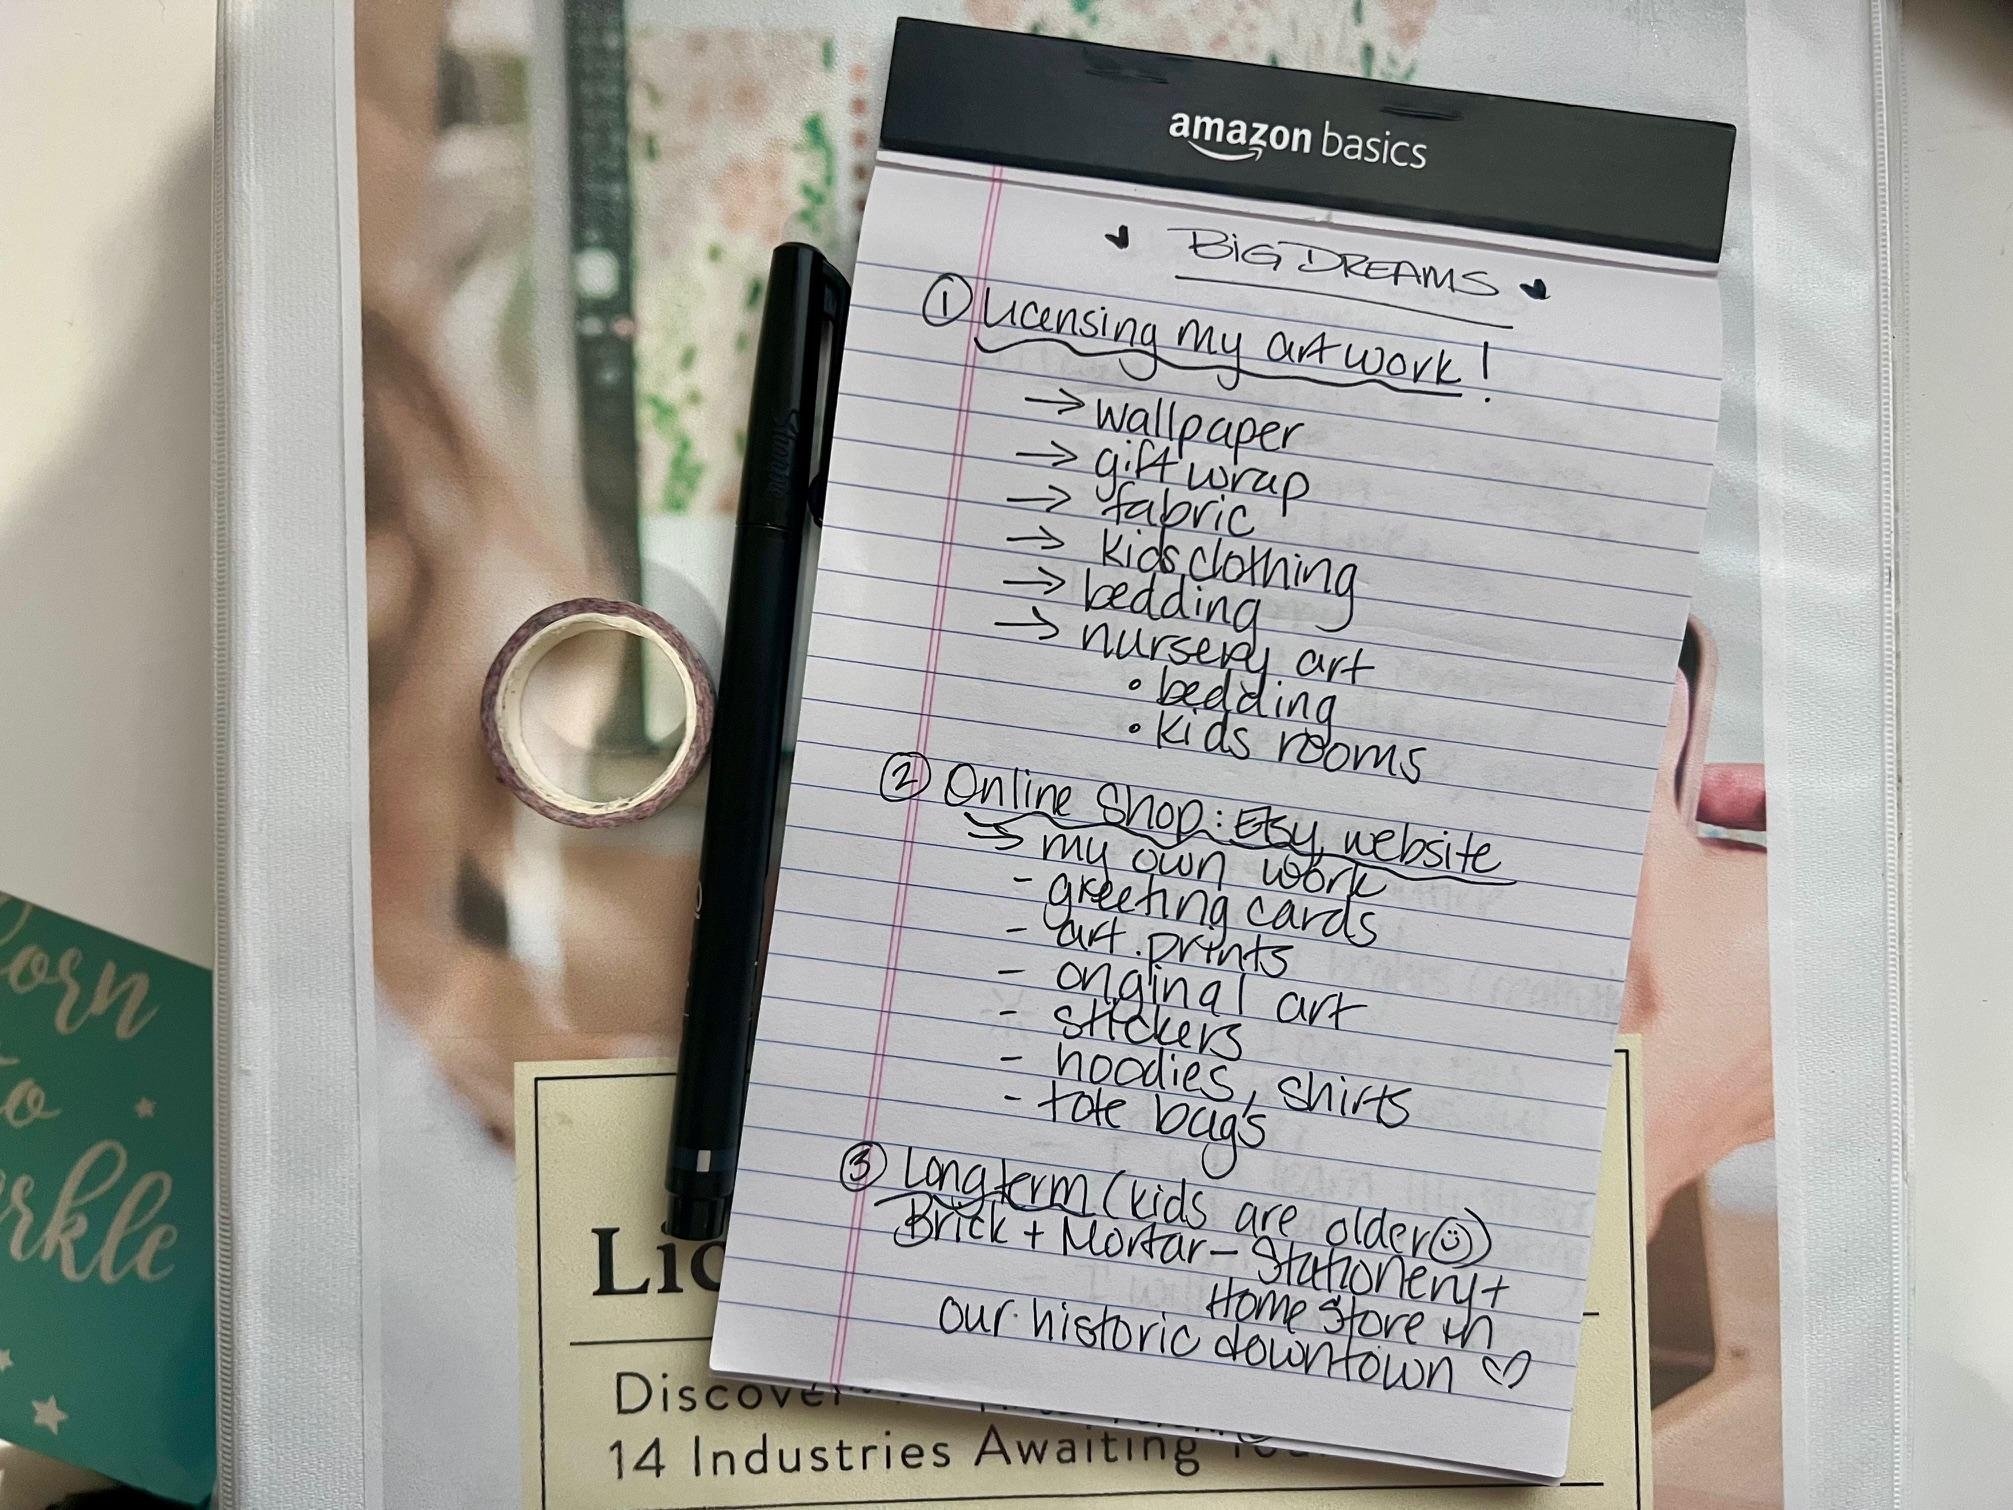 amazon basics
BIG DREAMS
① Licensing my artwork!
→ wallpaper
→ gift wrap
→ fabric
→ kids clothing
→ bedding
→ nursery art
• bedding
• kids rooms
② Online Shop: Etsy, website
→ my own work
- greeting cards
- art prints
- original art
- stickers
- hoodies, shirts
- tote bags
③ Longterm (kids are older☺)
Brick + Mortar – Stationery +
Home Store in
our historic downtown ♡
Sharpie
Born
to
Discover
14 Industries Awaiting